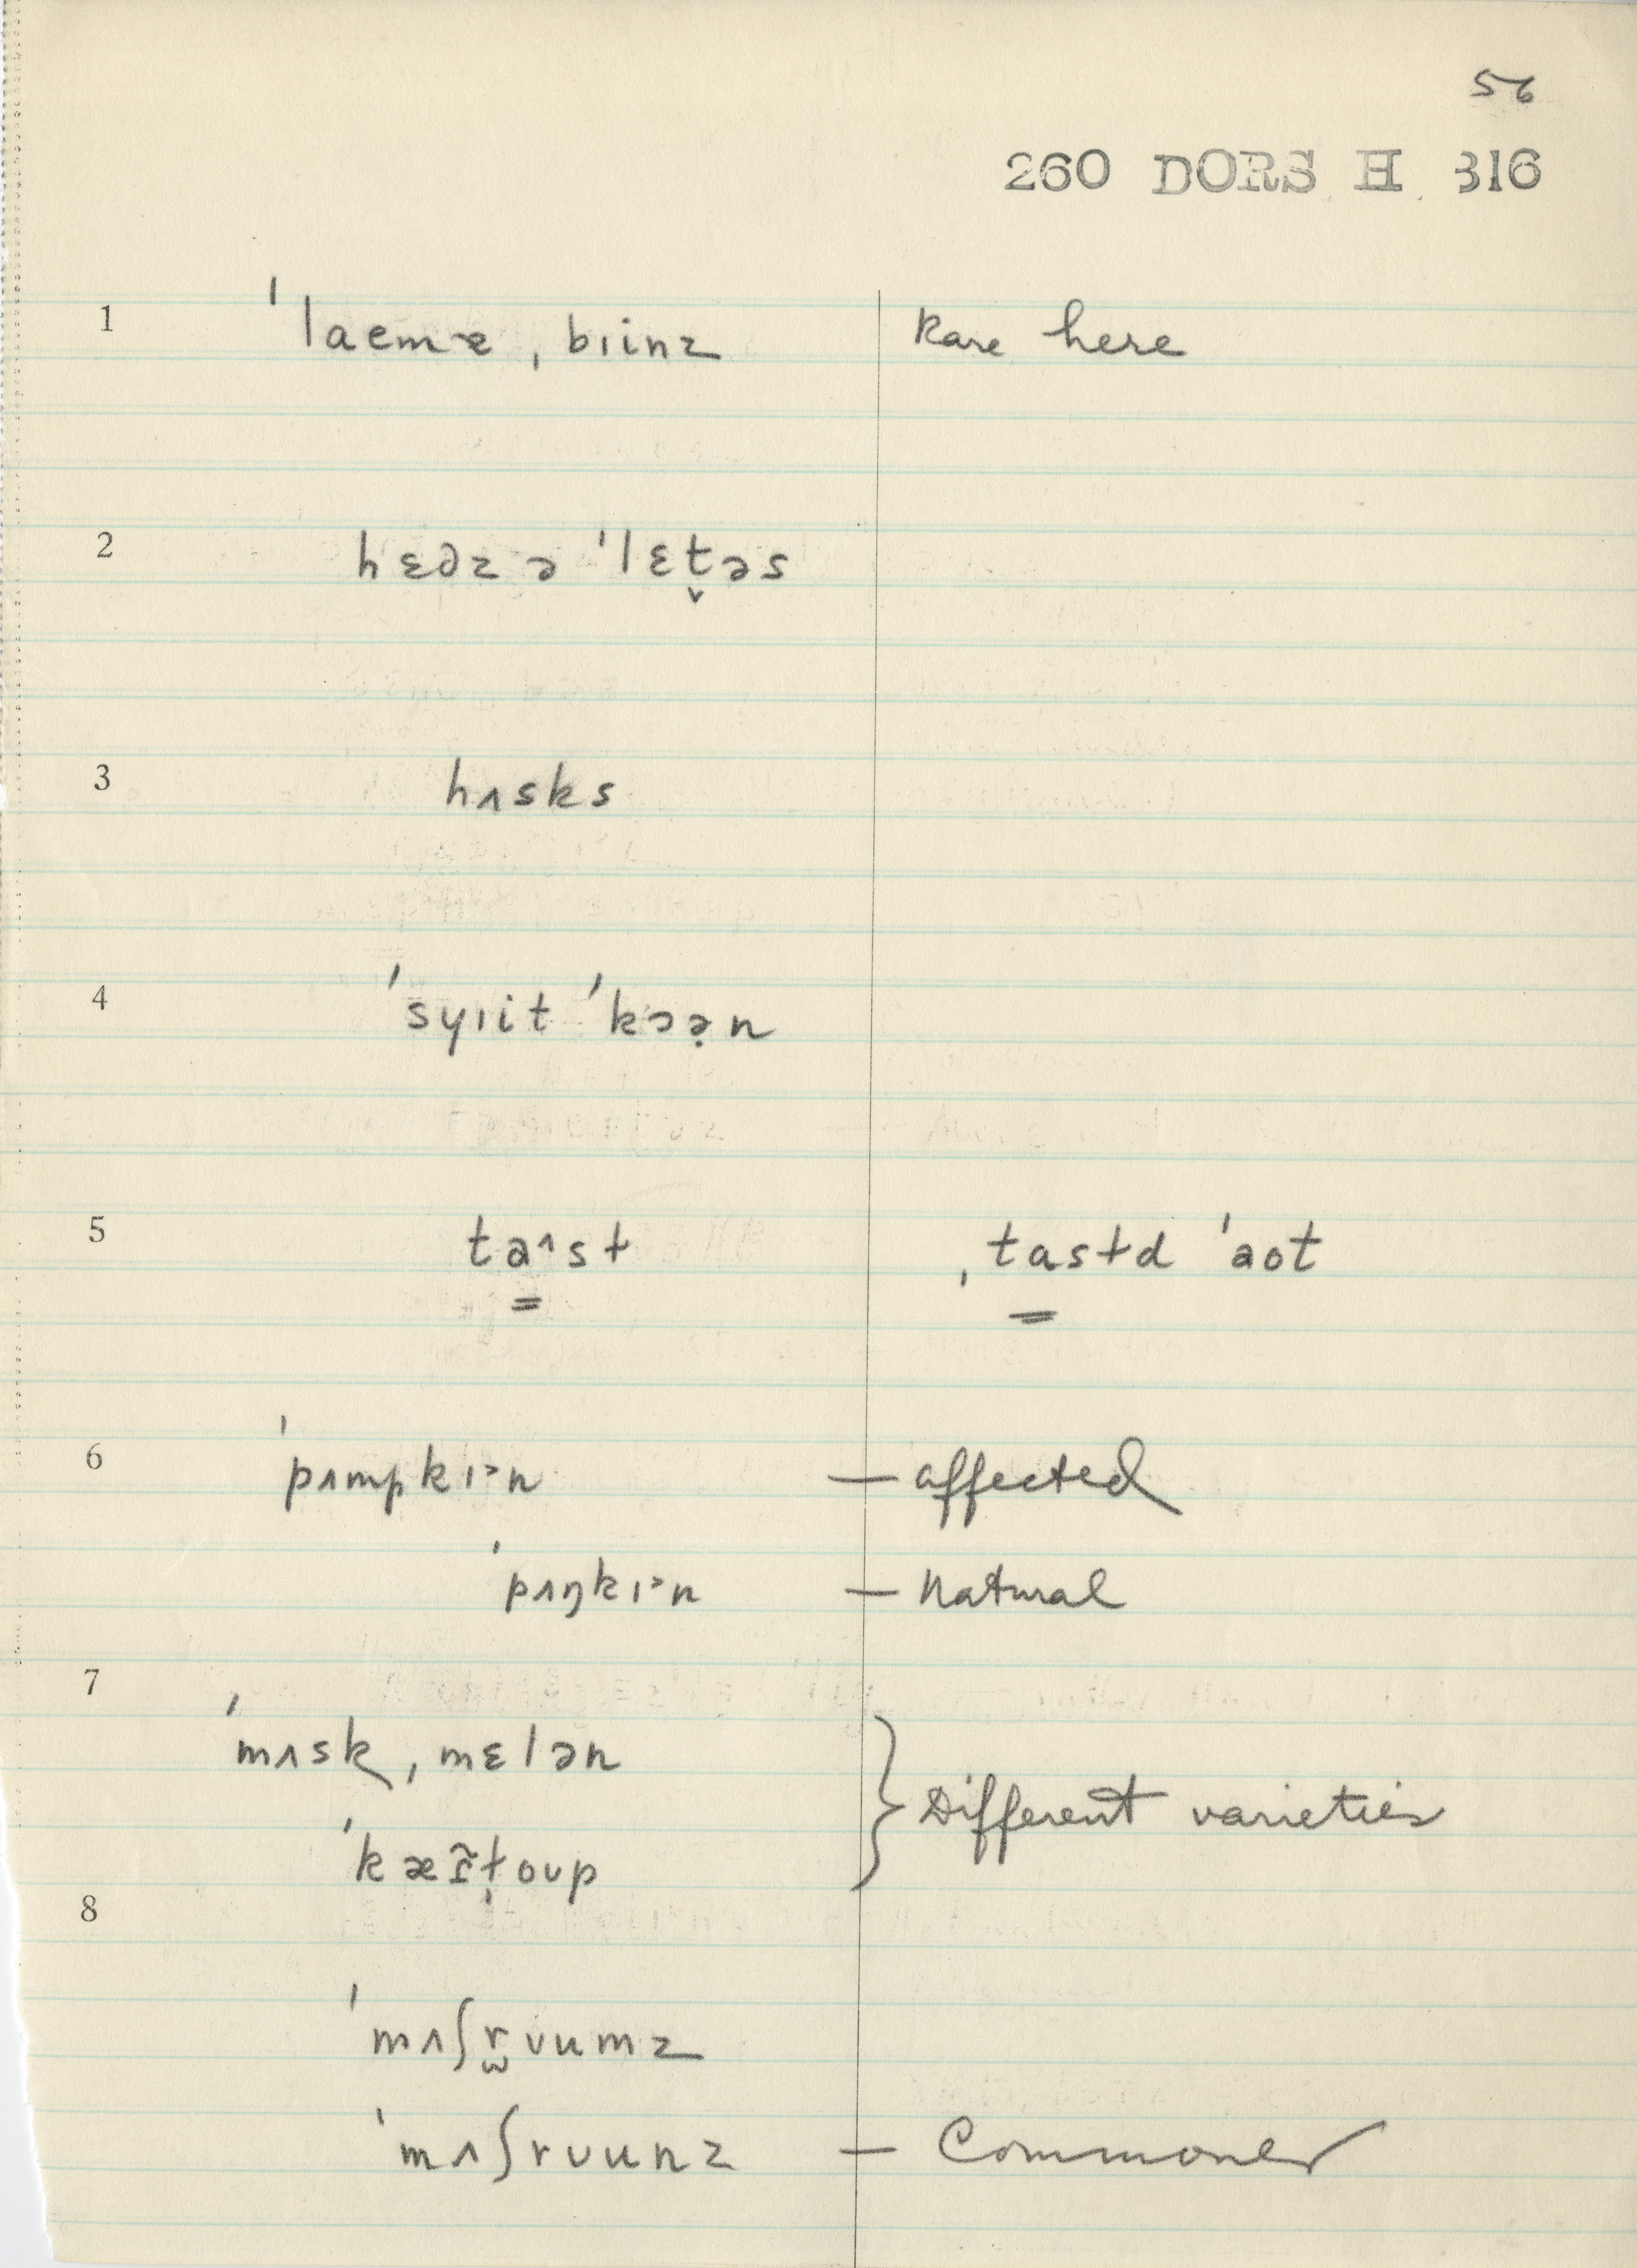 56
260 DORS H 316
1 ˈlaemə ˌbɪinz Rare here
2 hɛdz ə ˈlɛt̬əs
3 hʌsks
4 ˈsyɪit ˈkɔə̣n
5 ta^st ˌtastd ˈaot
6 ˈpʌmpkɪ˃n — affected
ˈpʌŋkɪ˃n — Natural
7
ˈmʌsk ˌmɛlən } Different varieties
ˈkæñt̩oʊp
8
ˈmʌʃr̫ʊumz
ˈmʌʃrʊunz — Commoner